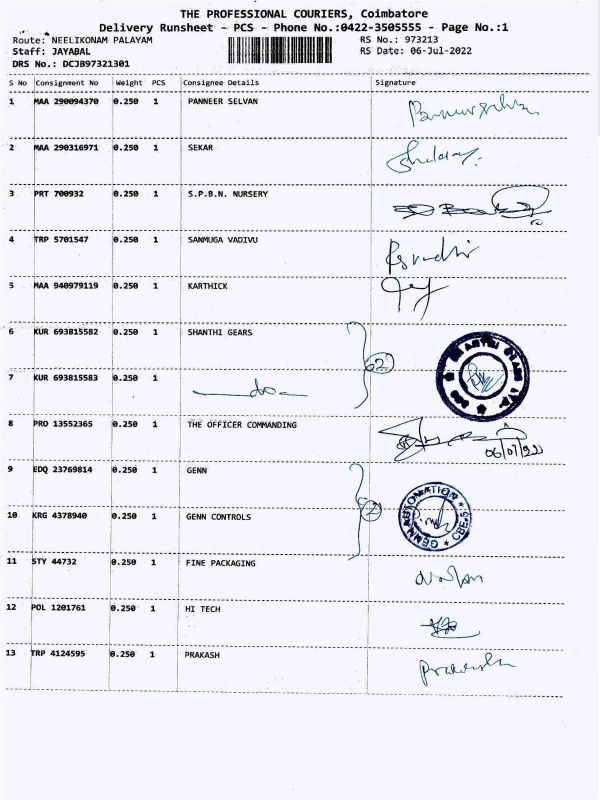 THE PROFESSIONAL COURIERS, Coimbatore
Delivery Runsheet - PCS - Phone No.:0422-3505555 - Page No.:1
Route: NEELIKONAM PALAYAM RS No.: 973213
Staff: JAYABAL RS Date: 06-Jul-2022
DRS No.: DCJB97321301
S No Consignment No Weight PCS Consignee Details Signature
1 MAA 290094370 0.250 1 PANNEER SELVAN
2 MAA 290316971 0.250 1 SEKAR
3 PRT 700932 0.250 1 S.P.B.N. NURSERY
4 TRP 5701547 0.250 1 SANMUGA VADIVU
5 MAA 940979119 0.250 1 KARTHICK
6 KUR 693815582 0.250 1 SHANTHI GEARS
7 KUR 693815583 0.250 1 -do-
8 PRO 13552365 0.250 1 THE OFFICER COMMANDING
9 EDQ 23769814 0.250 1 GENN
10 KRG 4378940 0.250 1 GENN CONTROLS
GENN AUTOMATION * CBE-5 *
11 STY 44732 0.250 1 FINE PACKAGING
12 POL 1201761 0.250 1 HI TECH
13 TRP 4124595 0.250 1 PRAKASH